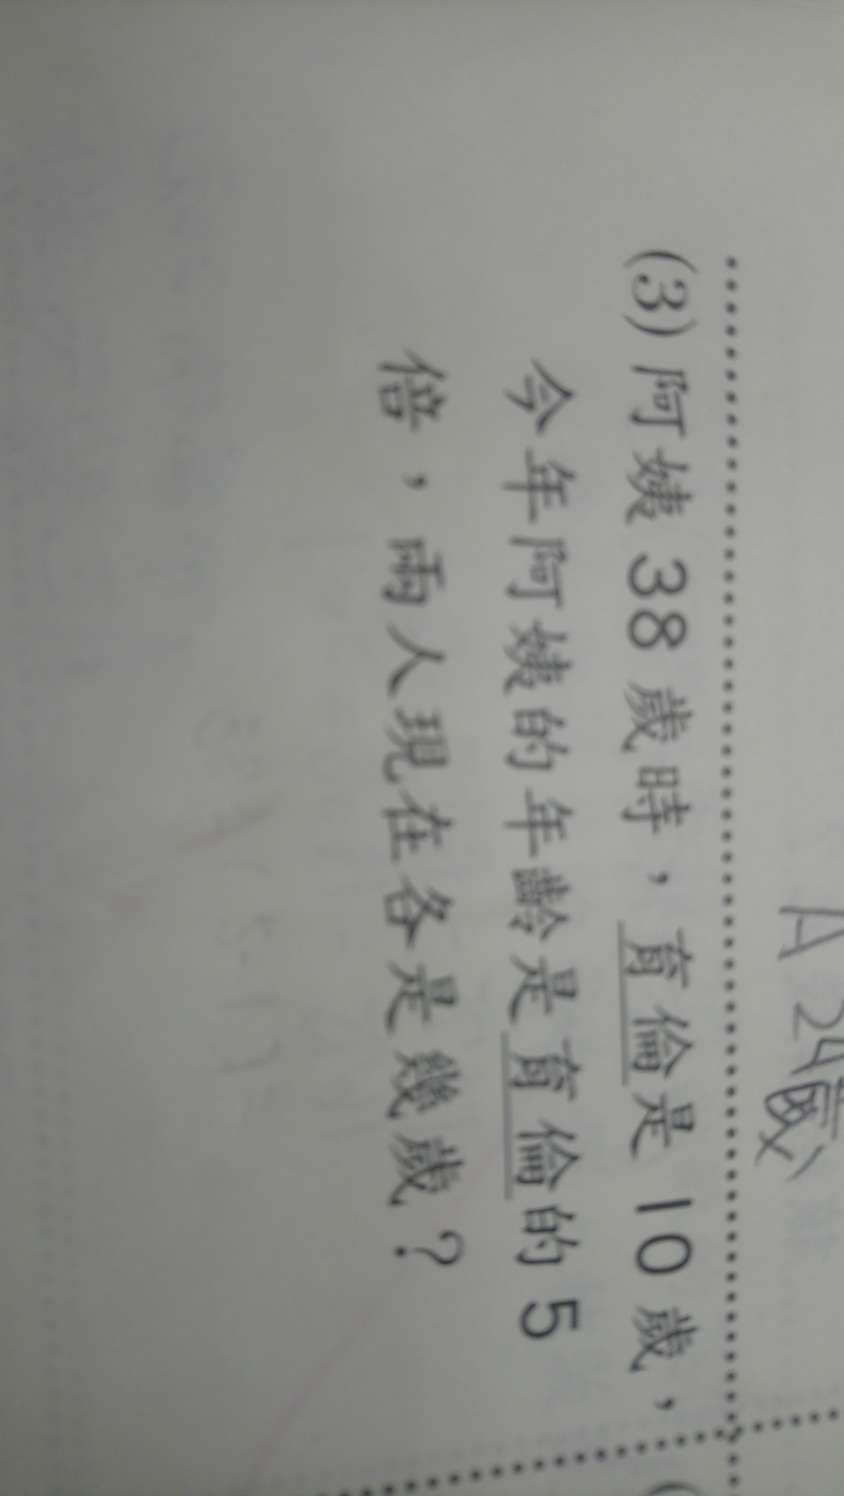 A 24歲
(3) 阿姨 38 歲時，育倫是 10 歲，
今年阿姨的年齡是育倫的 5
倍，兩人現在各是幾歲？
(